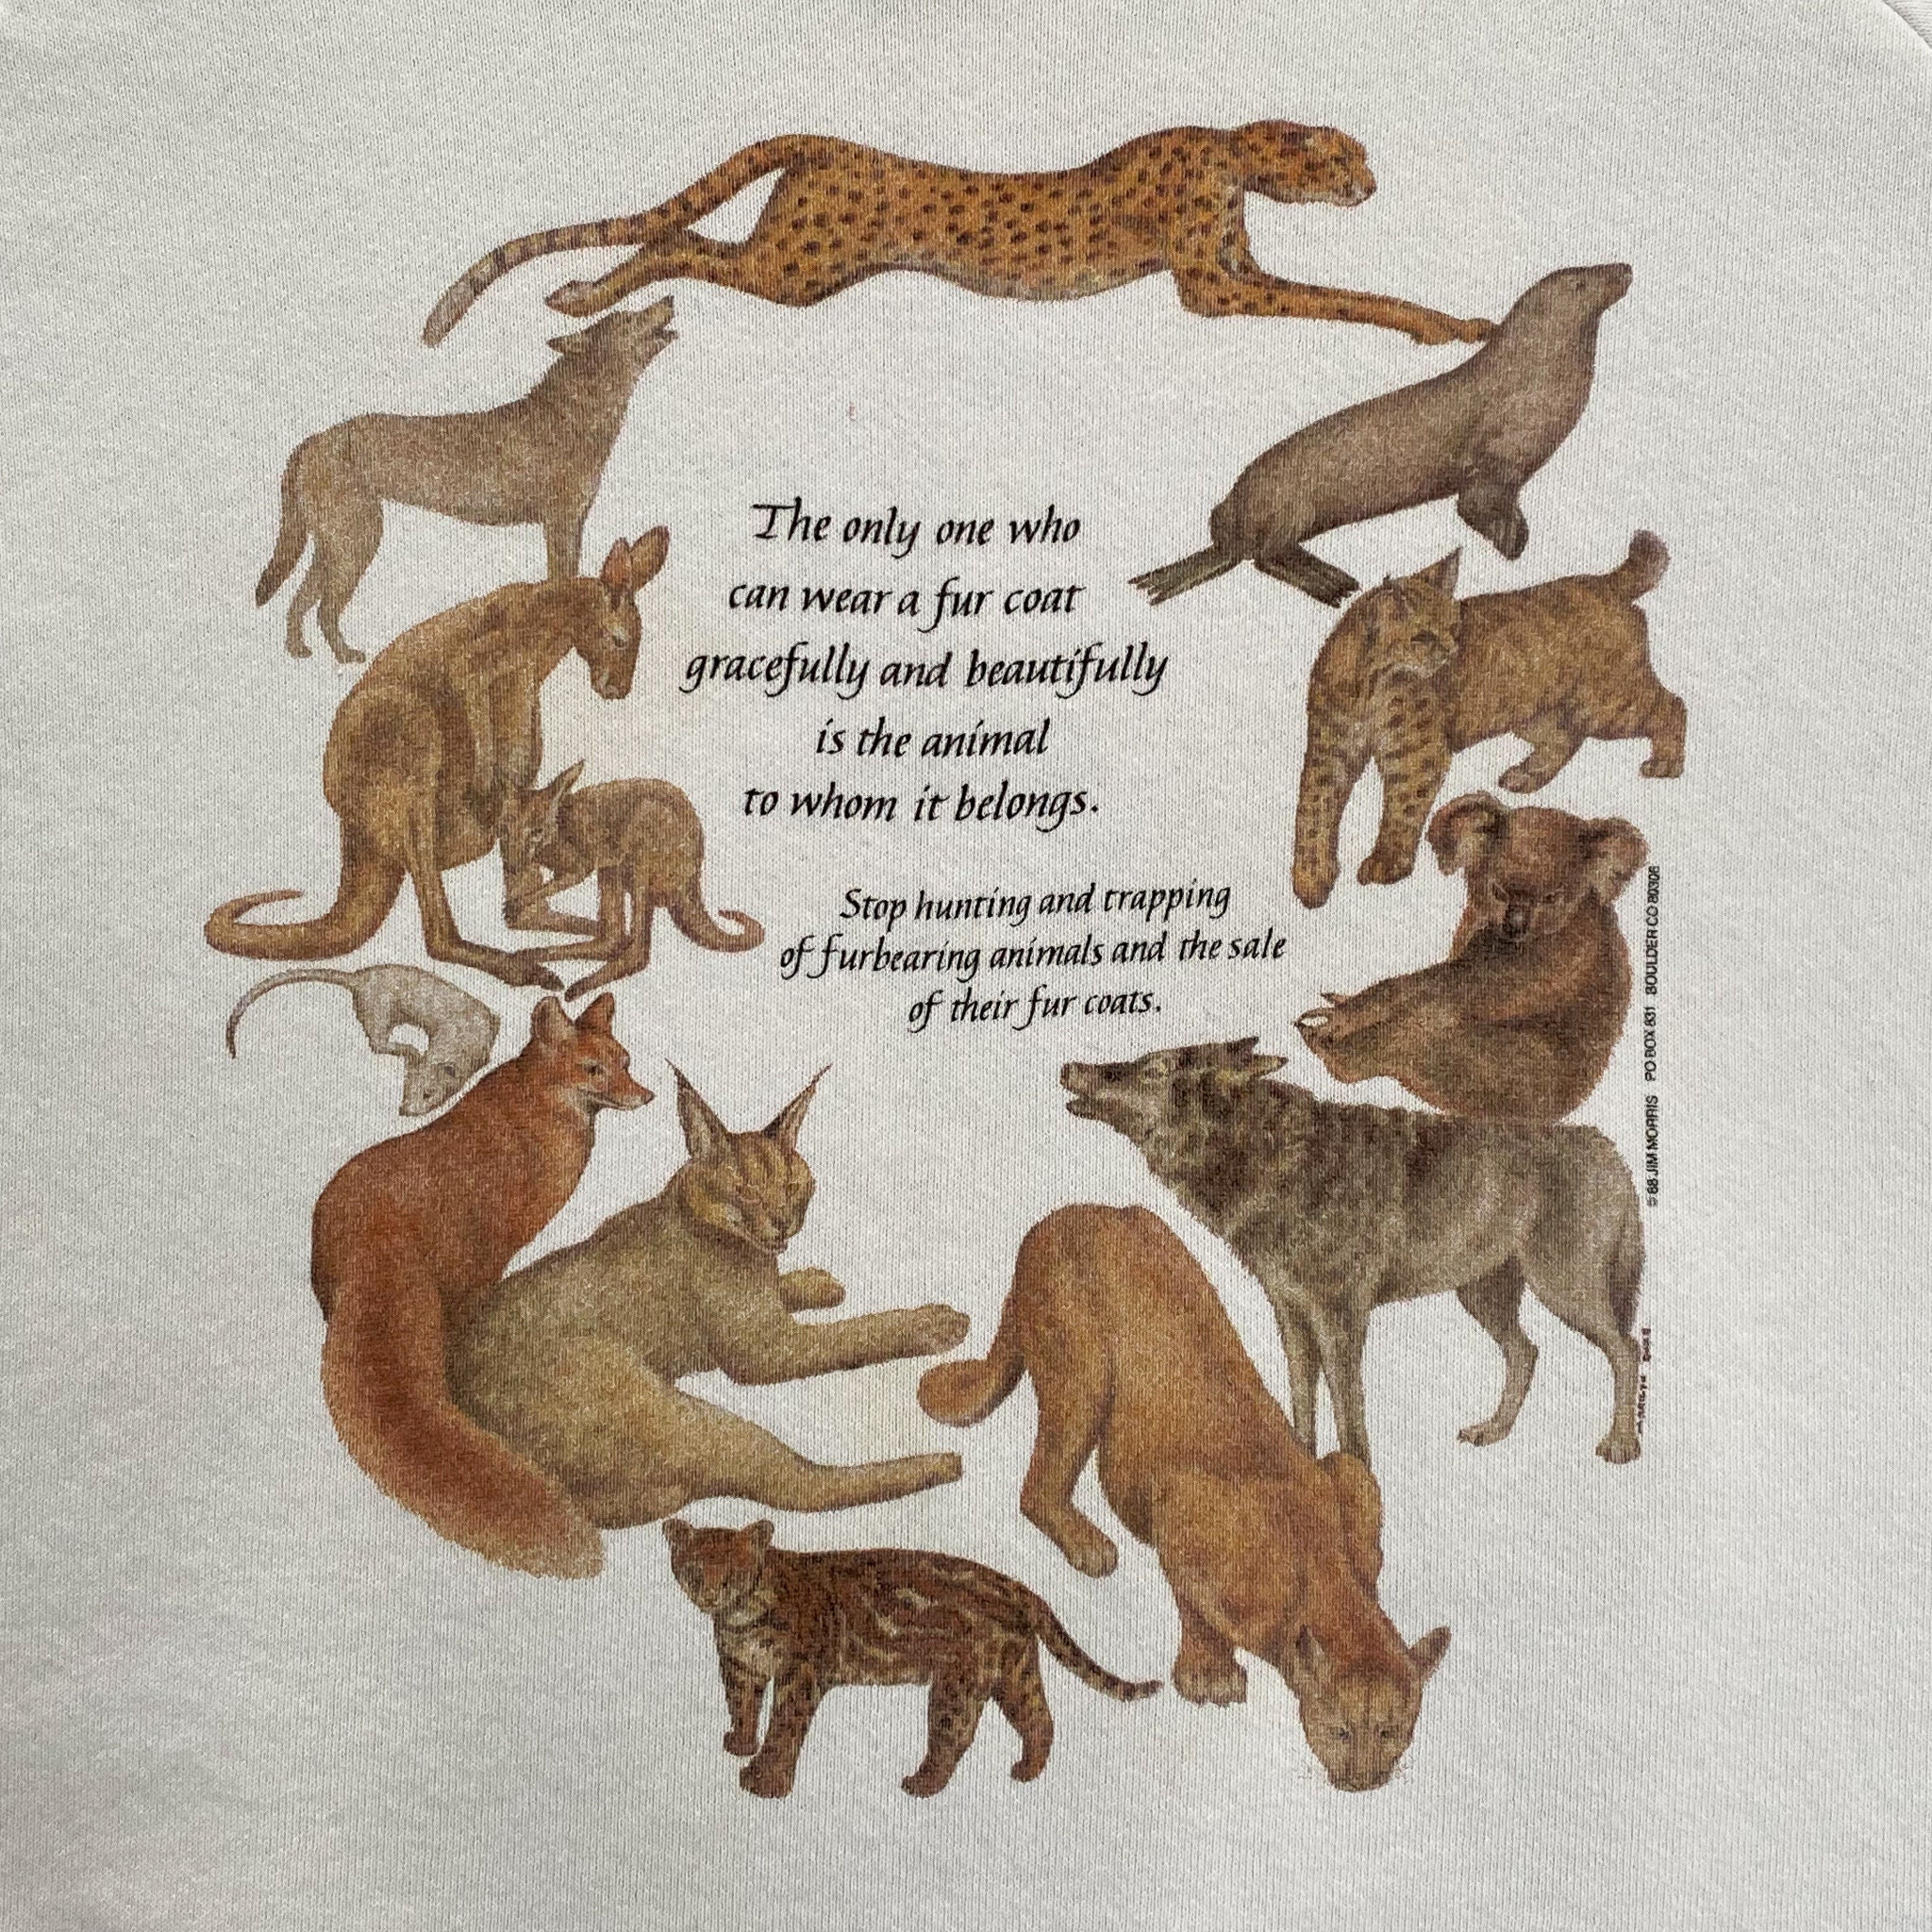 The only one who
can wear a fur coat
gracefully and beautifully
is the animal
to whom it belongs.
Stop hunting and trapping
of furbearing animals and the sale
of their fur coats.
© 88 JIM MORRIS PO BOX 831 BOULDER CO 80306